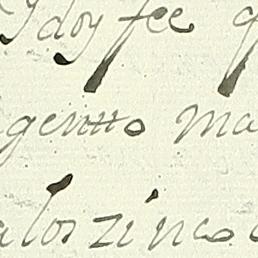 Y doy fee q
gentto ma
alos zinco